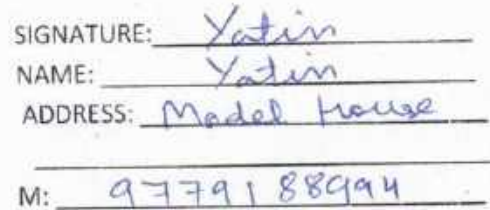 SIGNATURE: Yatin
NAME: Yatin
ADDRESS: Model House
M: 9779188994